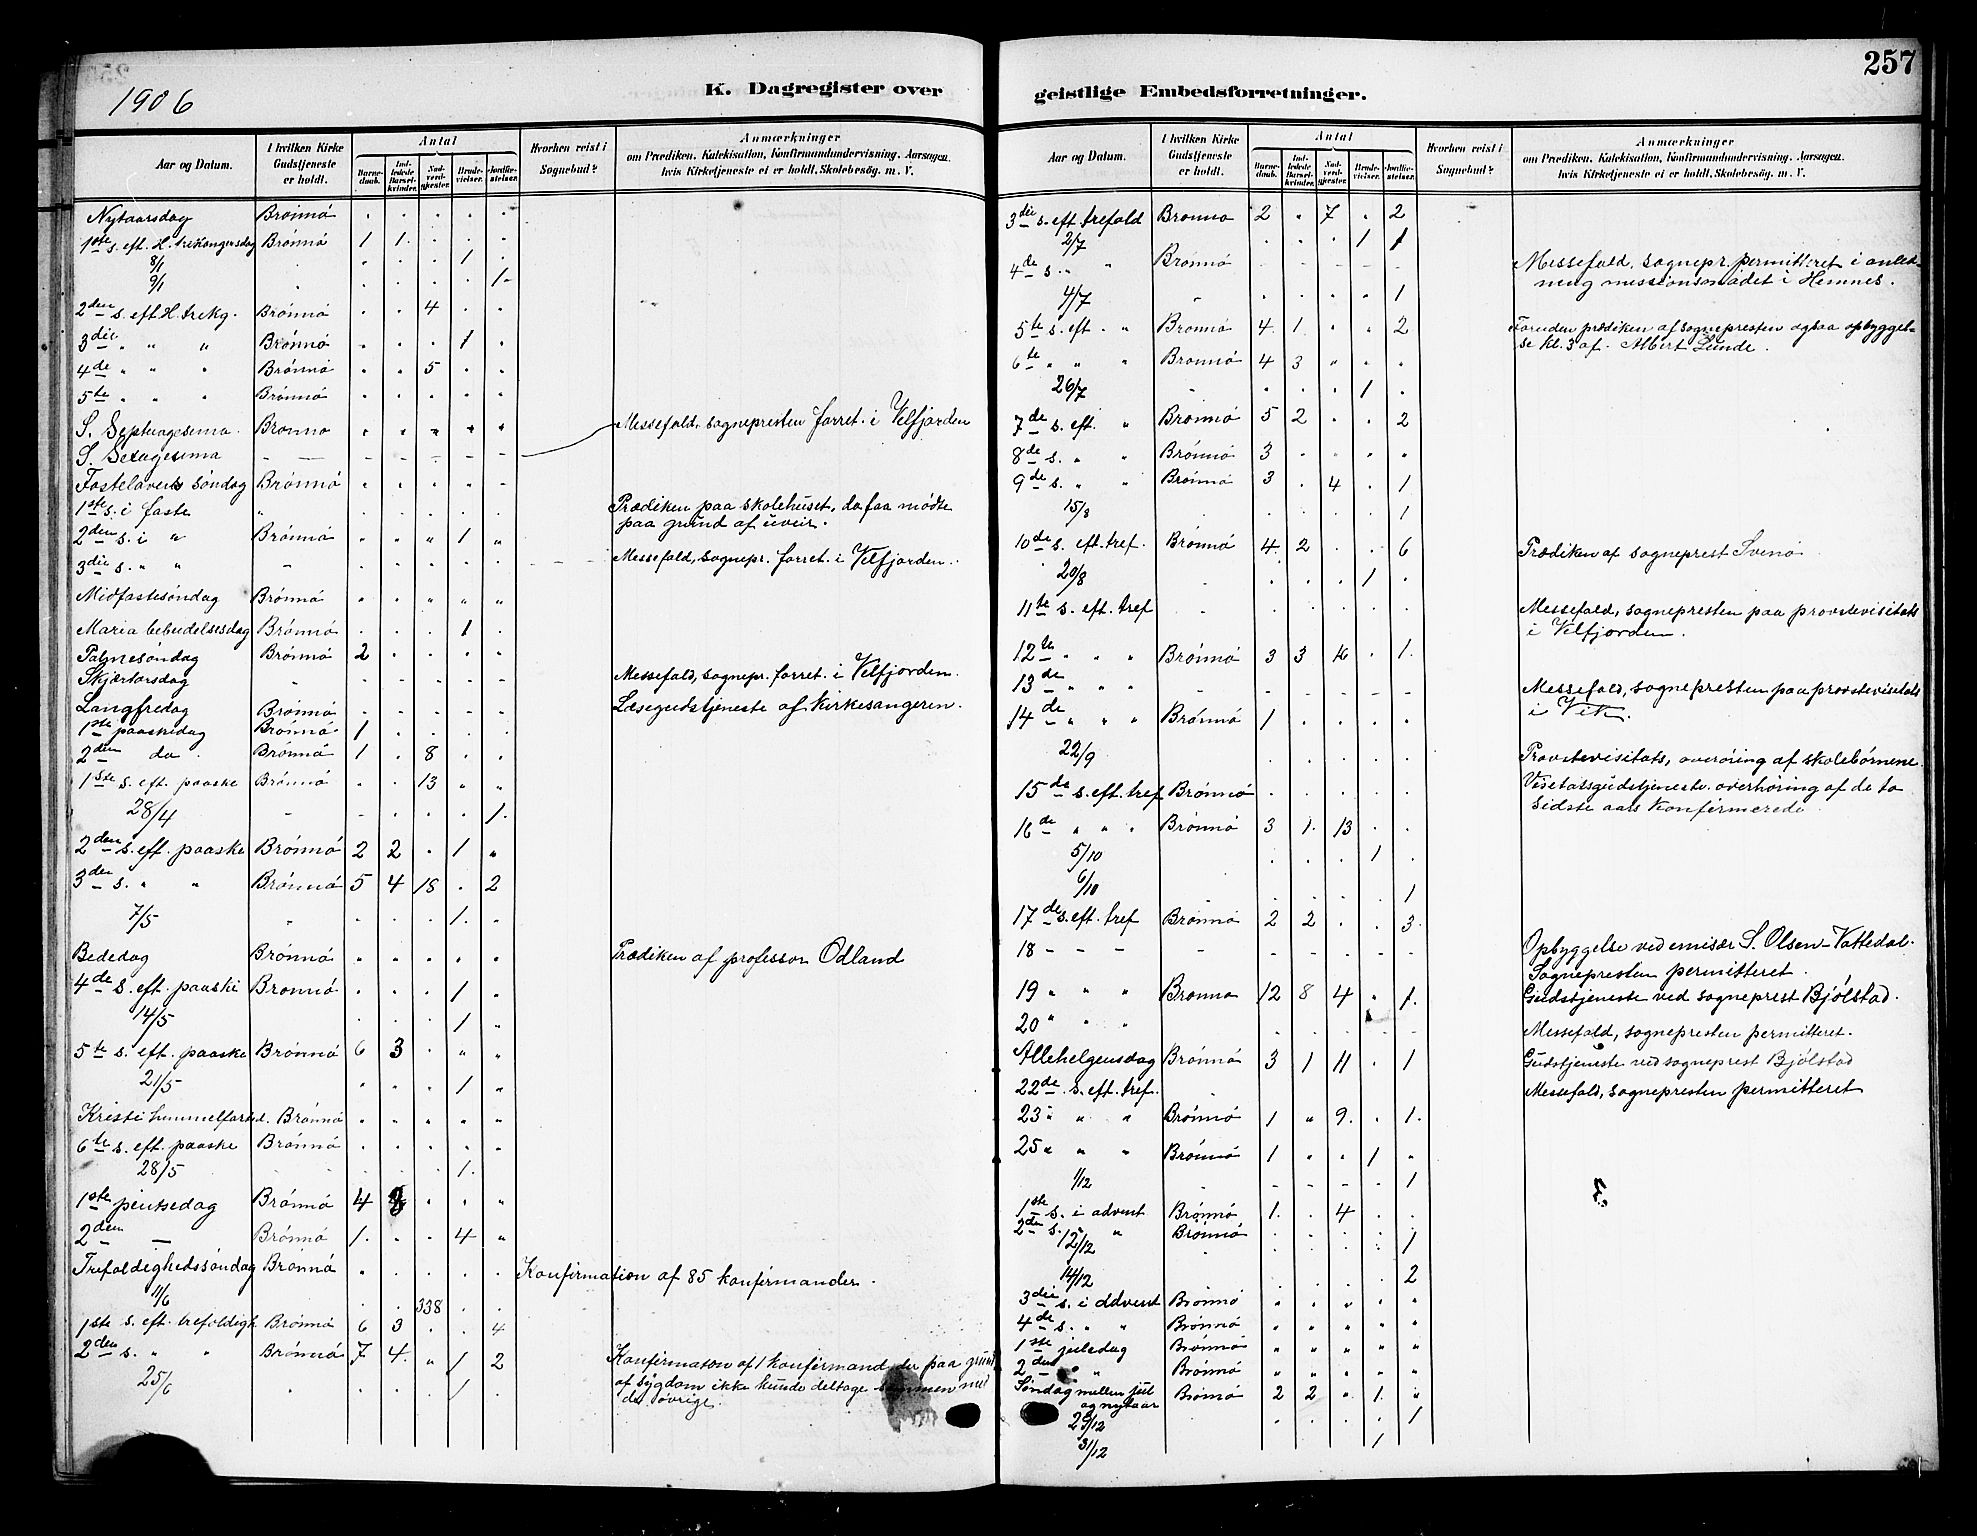 257
1906
K. Dagregister over
geistlige Embedsforretninger.
Aar og Datum. | I hvilken Kirke Gudstjeneste er holdt. | Antal | Barnedaab. | Indledede Barselkvinder. | Nadverdgjester. | Brudevielser. | Jordfæstelser. | Hvorhen reist i Sognebud? | Anmærkninger om Prædiken, Katekisation, Konfirmandundervisning, Aarsagen, hvis Kirketjeneste ei er holdt, Skolebesøg. m. V.
Nytaarsdag | Brønnø
1ste s. eft. H. trekongersdag | Brønnø | 1 | 1
8/1 | 1
9/1 | 1
2den s. eft. H. trekg. | Brønnø | 4
3die " " " | Brønnø | 1
4de " " " | Brønnø | 5
5te " " " | Brønnø
S. Septuagesima | Brønnø | Messefald, sognepresten forret. i Velfjorden
S. Sexagesima
Fastelavens søndag | Brønnø
1ste s. i faste | " | Prædiken paa skolehuset, da faa mødte
paa grund af uveir.
2den s. i " | Brønnø | 1
3die s. " " | Messefald, sognepr. forret. i Velfjorden.
Midfastesøndag | Brønnø
Maria bebudelsesdag | Brønnø | 1
Palmesøndag | Brønnø | 2
Skjærtorsdag | Messefald, sognepr. forret. i Velfjorden.
Langfredag | Brønnø | Læsegudstjeneste af Kirkesangeren.
1ste paaskedag | Brønnø | 1
2den do. | Brønnø | 1 | 8
1ste s. eft. paaske | Brønnø | 13
28/4 | 1
2den s. eft. paaske | Brønnø | 2 | 2 | 1
3den s. " " | Brønnø | 5 | 4 | 18 | 2
7/5 | 1
Bededag | Brønnø | Prædiken af professor Odland
4de s. eft. paaske | Brønnø | 1
14/5 | 1
5te s. eft. paaske | Brønnø | 6 | 3
21/5 | 1
Kristi himmelfartsd. | Brønnø
6te s. eft. paaske | Brønnø
28/5 | 1
1ste pintsedag | Brønnø | 4
2den — | Brønnø | 1 | 4
Trefoldighedssøndag | Brønnø | Konfirmation af 85 konfirmander.
11/6 | 338
1ste s. eft. trefoldigh | Brønnø | 6 | 3 | 4
2den s. " " | Brønnø | 7 | 4 | 1 | 2 | Konfirmason af 1 konfirmand, der paa grund
25/6 | 1 | af sygdom ikke kunde deltage sammen med
de øvrige.
Aar og Datum. | I hvilken Kirke Gudstjeneste er holdt. | Antal | Barnedaab. | Indledede Barselkvinder. | Nadverdgjester. | Brudevielser. | Jordfæstelser. | Hvorhen reist i Sognebud? | Anmærkninger om Prædiken, Katekisation, Konfirmandundervisning, Aarsagen, hvis Kirketjeneste ei er holdt, Skolebesøg. m. V.
3die s. eft. trefold | Brønnø | 2 | 7 | 2
2/7 | 1 | 1
4de s. " " | Brønnø | Messefald, sognepr. permitteret i anled-
ning missionsmødet i Hemnes.
4/7 | 1
5te s. eft. " | Brønnø | 4 | 1 | 2 | Foruden prædiken af sognepresten ogsaa opbyggel-
se kl. 3 af Albert Lunde.
6te " " " | Brønnø | 4 | 3
26/7 | 1
7de s. eft. " | Brønnø | 5 | 2 | 2
8de s. " " | Brønnø | 3
9de s. " " | Brønnø | 3 | 4 | 1
15/8 | 1
10de s. eft. tref. | Brønnø | 4 | 2 | 6 | Prædiken af sogneprest Svenø
20/8 | 1
11te s. eft. tref | Messefald, sognepresten paa provstevisitats
i Velfjorden.
12te " " " | Brønnø | 3 | 3 | 16 | 1
13de " " " | Messefald, sognepresten paa provstevisitats
i Vik.
14de " " " | Brønnø | 1
22/9 | Provstevisitats, overøring af skolebørnene.
15de s. eft. tref | Brønnø | Visitatsgudstjeneste. overhøring af de to
sidste aars konfirmerede
16de " " " | Brønnø | 3 | 1 | 13
5/10 | 1
6/10 | 1
17de s. eft. tref | Brønnø | 2 | 2 | 3
18 — — — | Opbyggelse ved emisær S. Olsen-Vattedal.
Sognepresten permitteret.
19 " " " | Brønnø | 12 | 8 | 4 | 1 | Gudstjeneste ved sogneprest Bjølstad.
20 " " " | Messefald, sognepresten permitteret.
Allehelgensdag | Brønnø | 3 | 1 | 11 | 1 | Gudstjeneste ved sogneprest Bjølstad
22de s. eft. tref. | Messefald, sognepresten permitteret
23 " " " | Brønnø | 1 | 9 | 1
25 " " " | Brønnø | 1 | 1
1/12 | 1
1ste s. i advent | Brønnø | 1 | 4
2den s. " " | Brønnø
12/12 | 1
14/12 | 2
3die s. i advent | Brønnø
4de s. " " | Brønnø
1ste juledag | Brønnø
2den " | Brønnø
Søndag mellem jul | Brønnø | 2 | 2 | 1
og nytaar
29/12 | 1
31/12 | 1